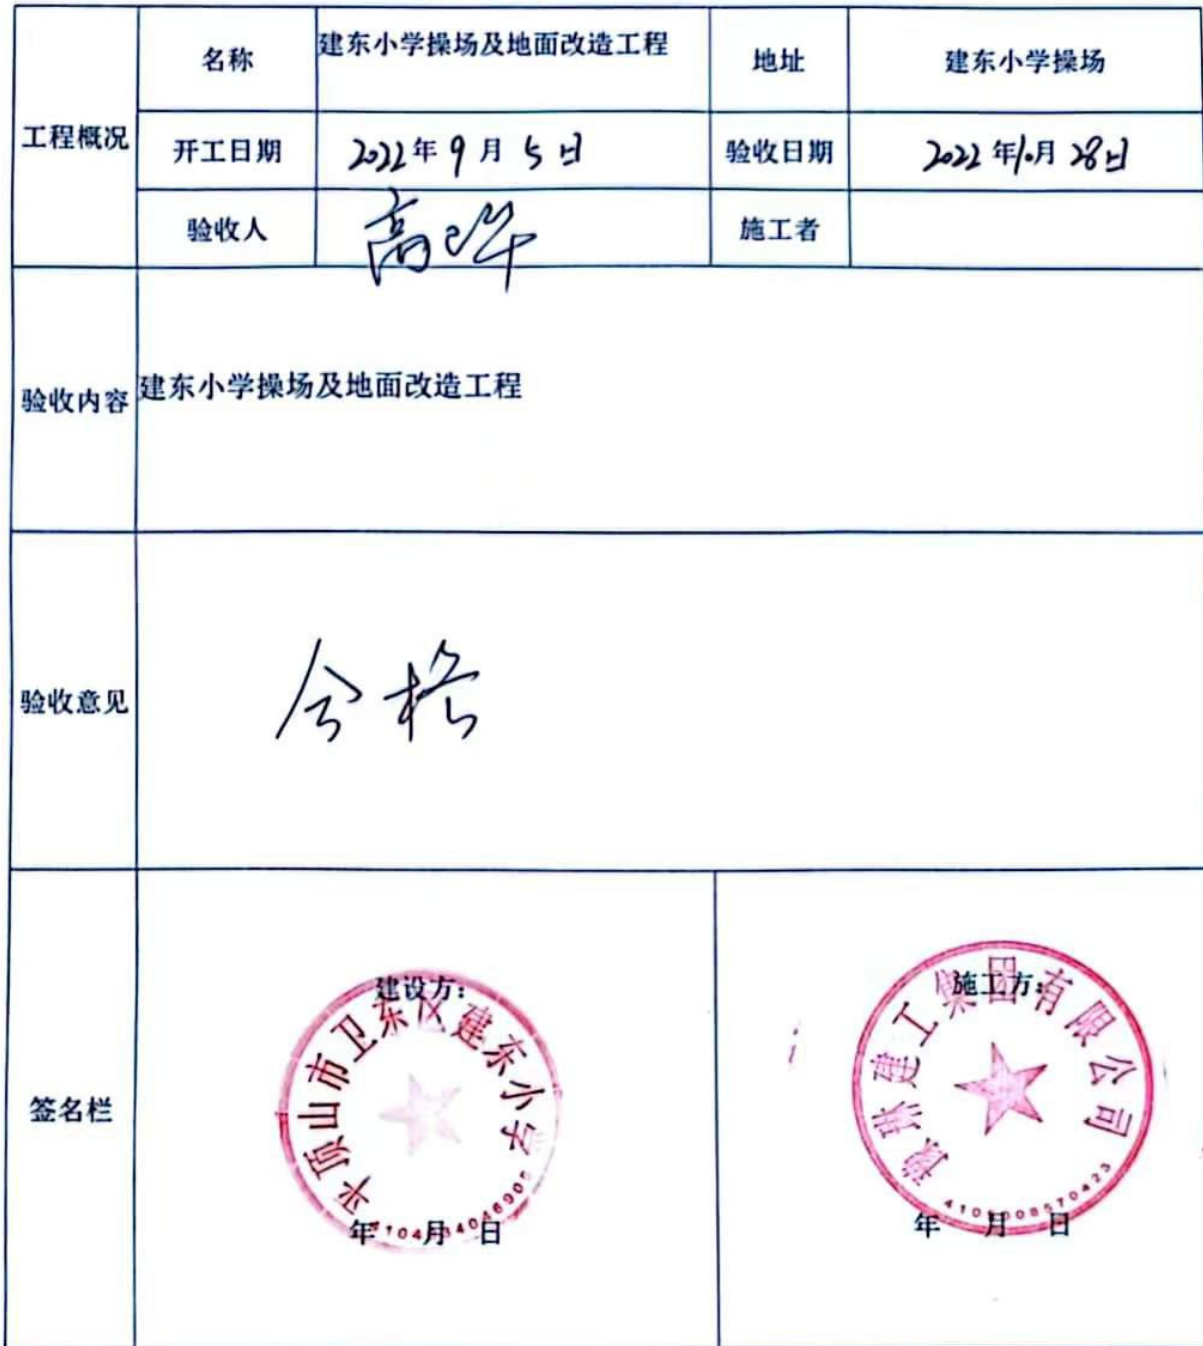 名称 建东小学操场及地面改造工程 地址 建东小学操场
工程概况 开工日期 2022年9月5日 验收日期 2022年10月28日
验收人 高 施工者
验收内容 建东小学操场及地面改造工程
验收意见 合格
签名栏
建设方：
平顶山市卫东区建东小学
年 月 日
施工方：
建工集团有限公司
年 月 日